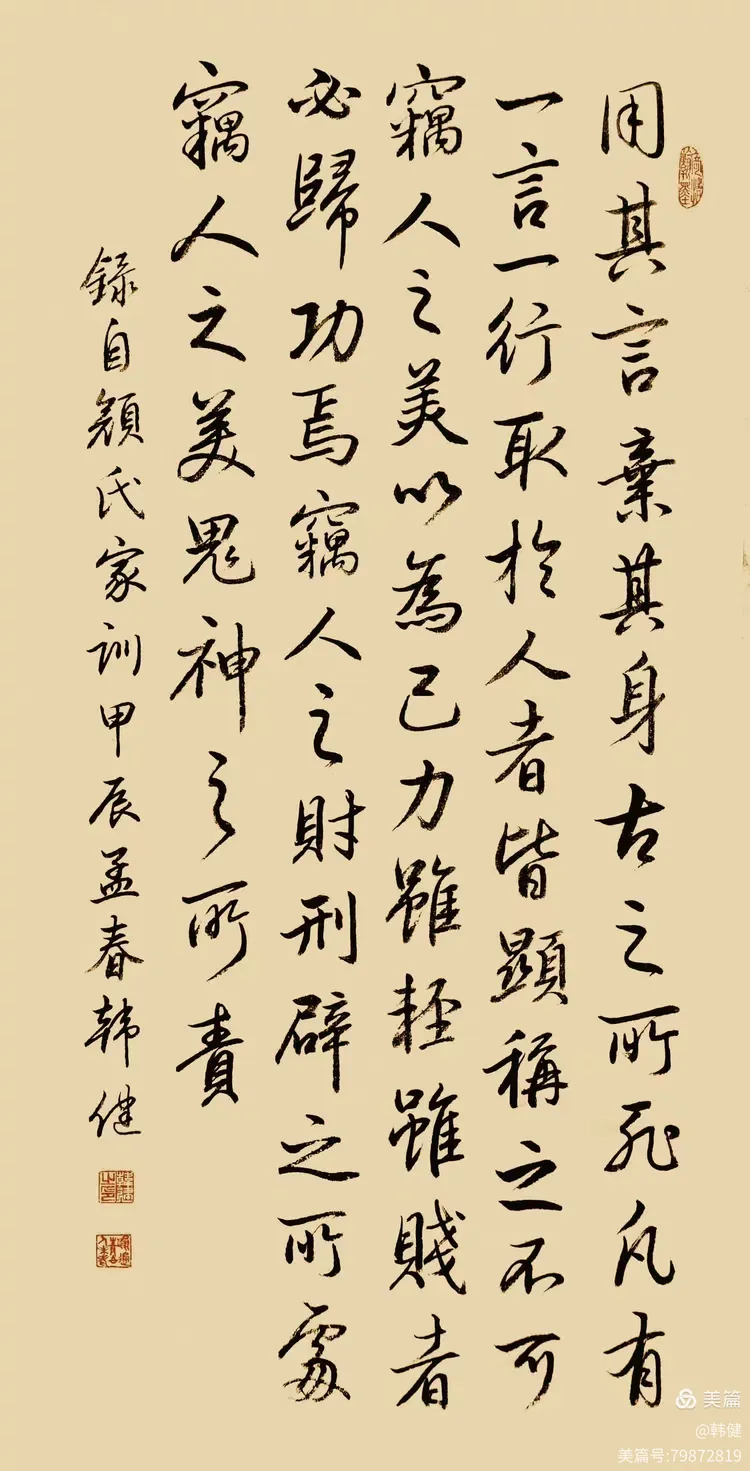 用其言棄其身古之所恥凡有
一言一行取於人者皆顯稱之不可
竊人之美以為己力雖輕雖賤者
必歸功焉竊人之財刑辟之所處
竊人之美鬼神之所責
録自顔氏家训甲辰孟春韩健
美篇
@韩健
美篇号:79872819